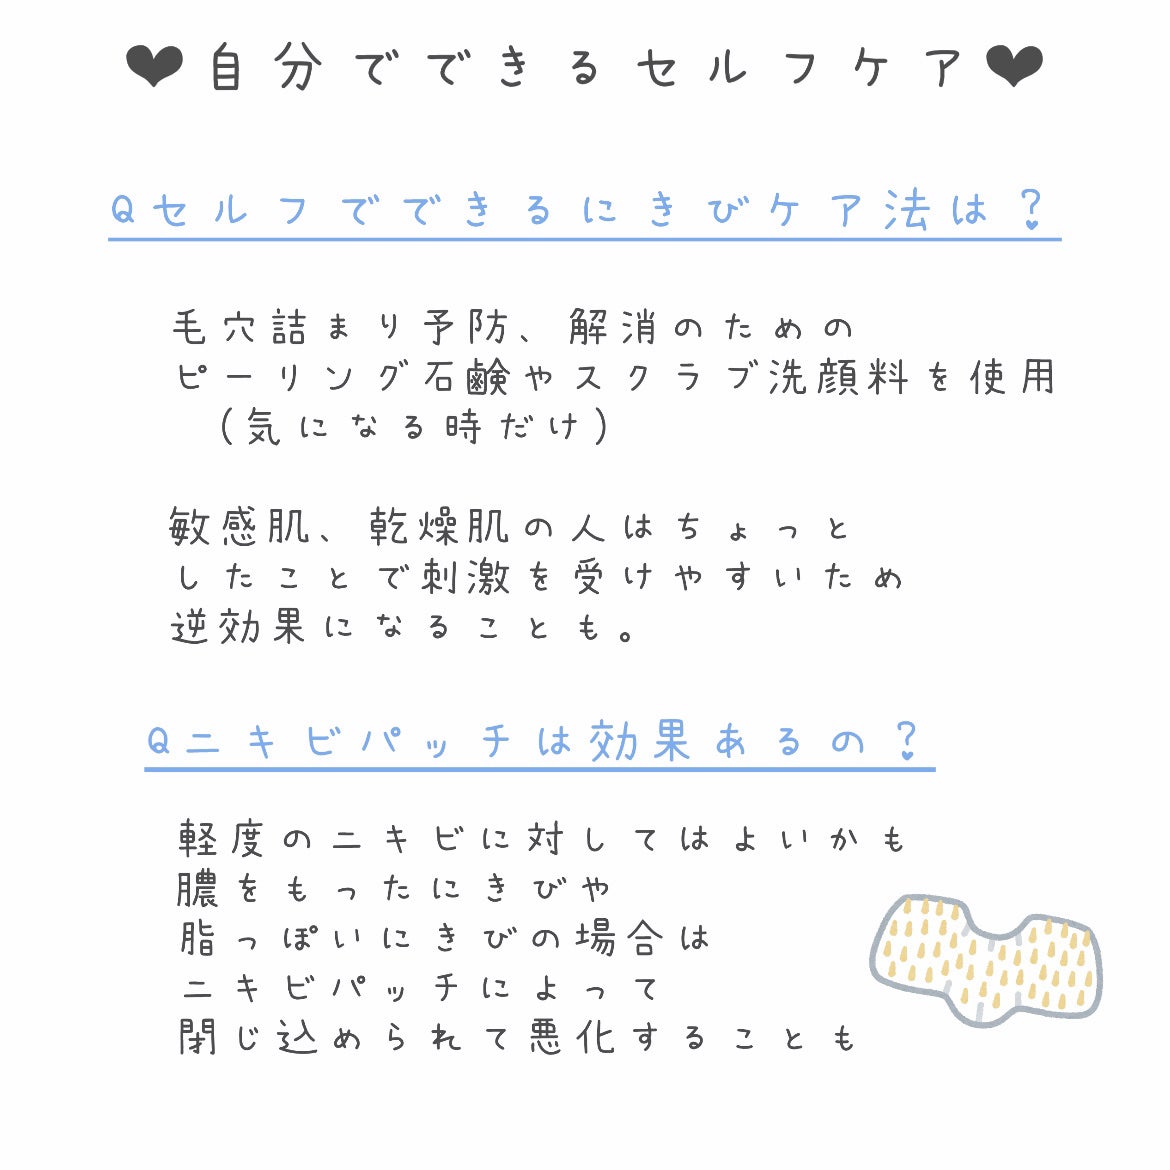 ♥自分でできるセルフケア♥
Qセルフでできるにきびケア法は？
毛穴詰まり予防、解消のための
ピーリング石鹸やスクラブ洗顔料を使用
(気になる時だけ)
敏感肌、乾燥肌の人はちょっと
したことで刺激を受けやすいため
逆効果になることも。
Qニキビパッチは効果あるの？
軽度のニキビに対してはよいかも
膿をもったにきびや
脂っぽいにきびの場合は
ニキビパッチによって
閉じ込められて悪化することも